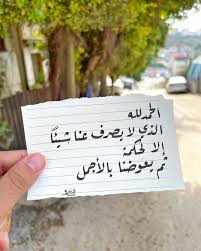 الحمد لله
الذي لا يصرف عنا شيئاً
إلا لحكمة
ثم يعوضنا بالأجمل